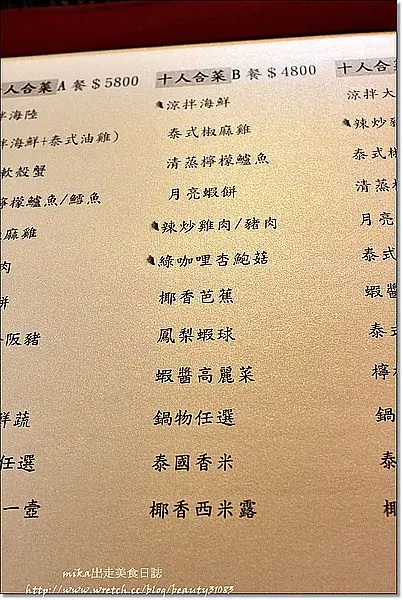 人合菜 A 餐 $5800
拌海陸
拌海鮮+泰式油雞)
軟殼蟹
檸檬鱸魚/鱈魚
麻雞
肉
餅
阪豬
鮮蔬
任選
一壺
十人合菜 B 餐 $4800
涼拌海鮮
泰式椒麻雞
清蒸檸檬鱸魚
月亮蝦餅
辣炒雞肉/豬肉
綠咖哩杏鮑菇
椰香芭蕉
鳳梨蝦球
蝦醬高麗菜
鍋物任選
泰國香米
椰香西米露
十人合菜
涼拌大
辣炒豬
泰式椒
清蒸檸
月亮
泰式
蝦醬
泰式
檸
鍋
泰
椰
mika出走美食日誌
http://www.wretch.cc/blog/beauty31083